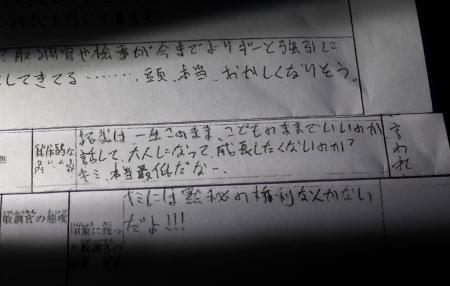 取調官や検事が今までよりずーと強引に
してきてる………、頭、本当、おかしくなりそう。
結局は一生このまま、こどものままでいいのか
話して、大人になって、成長したくないのか?
キミ、本当最低だなー。
言われ
取調官の態度
印象に残っ
た取調官の
キミには黙秘の権利なんかない
だよ!!!